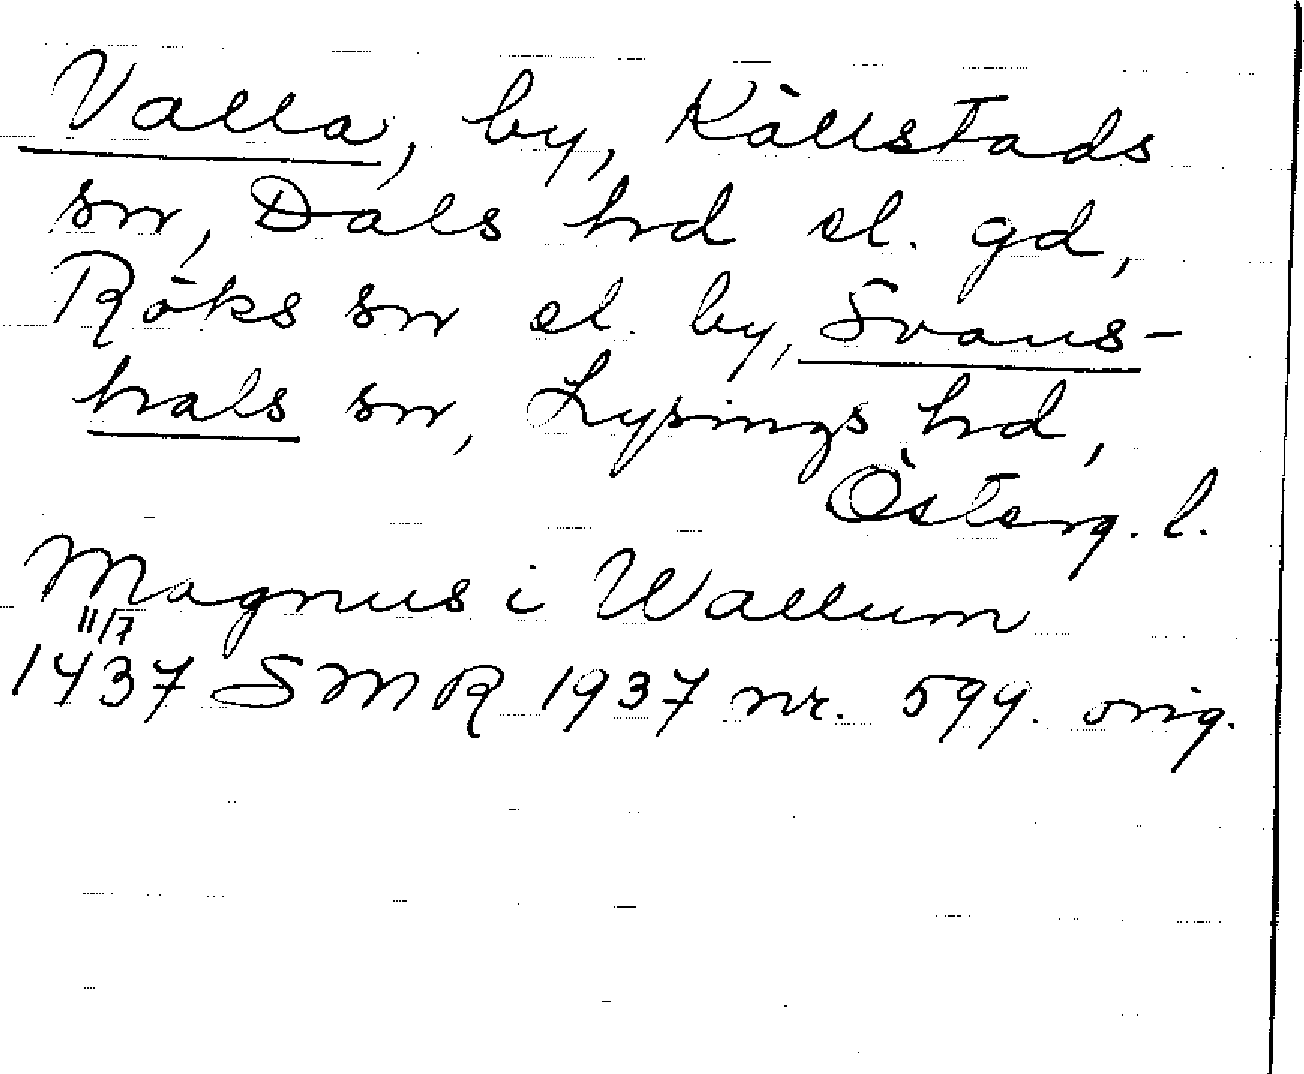 Valla, by, Källstads
sn, Dals hd el. gd,
Röks sn el. by, Svans-
hals sn, Lysings hd,
Österg. l.
Magnus i Wallum
11/7
1437 SMR 1937 nr. 594. orig.